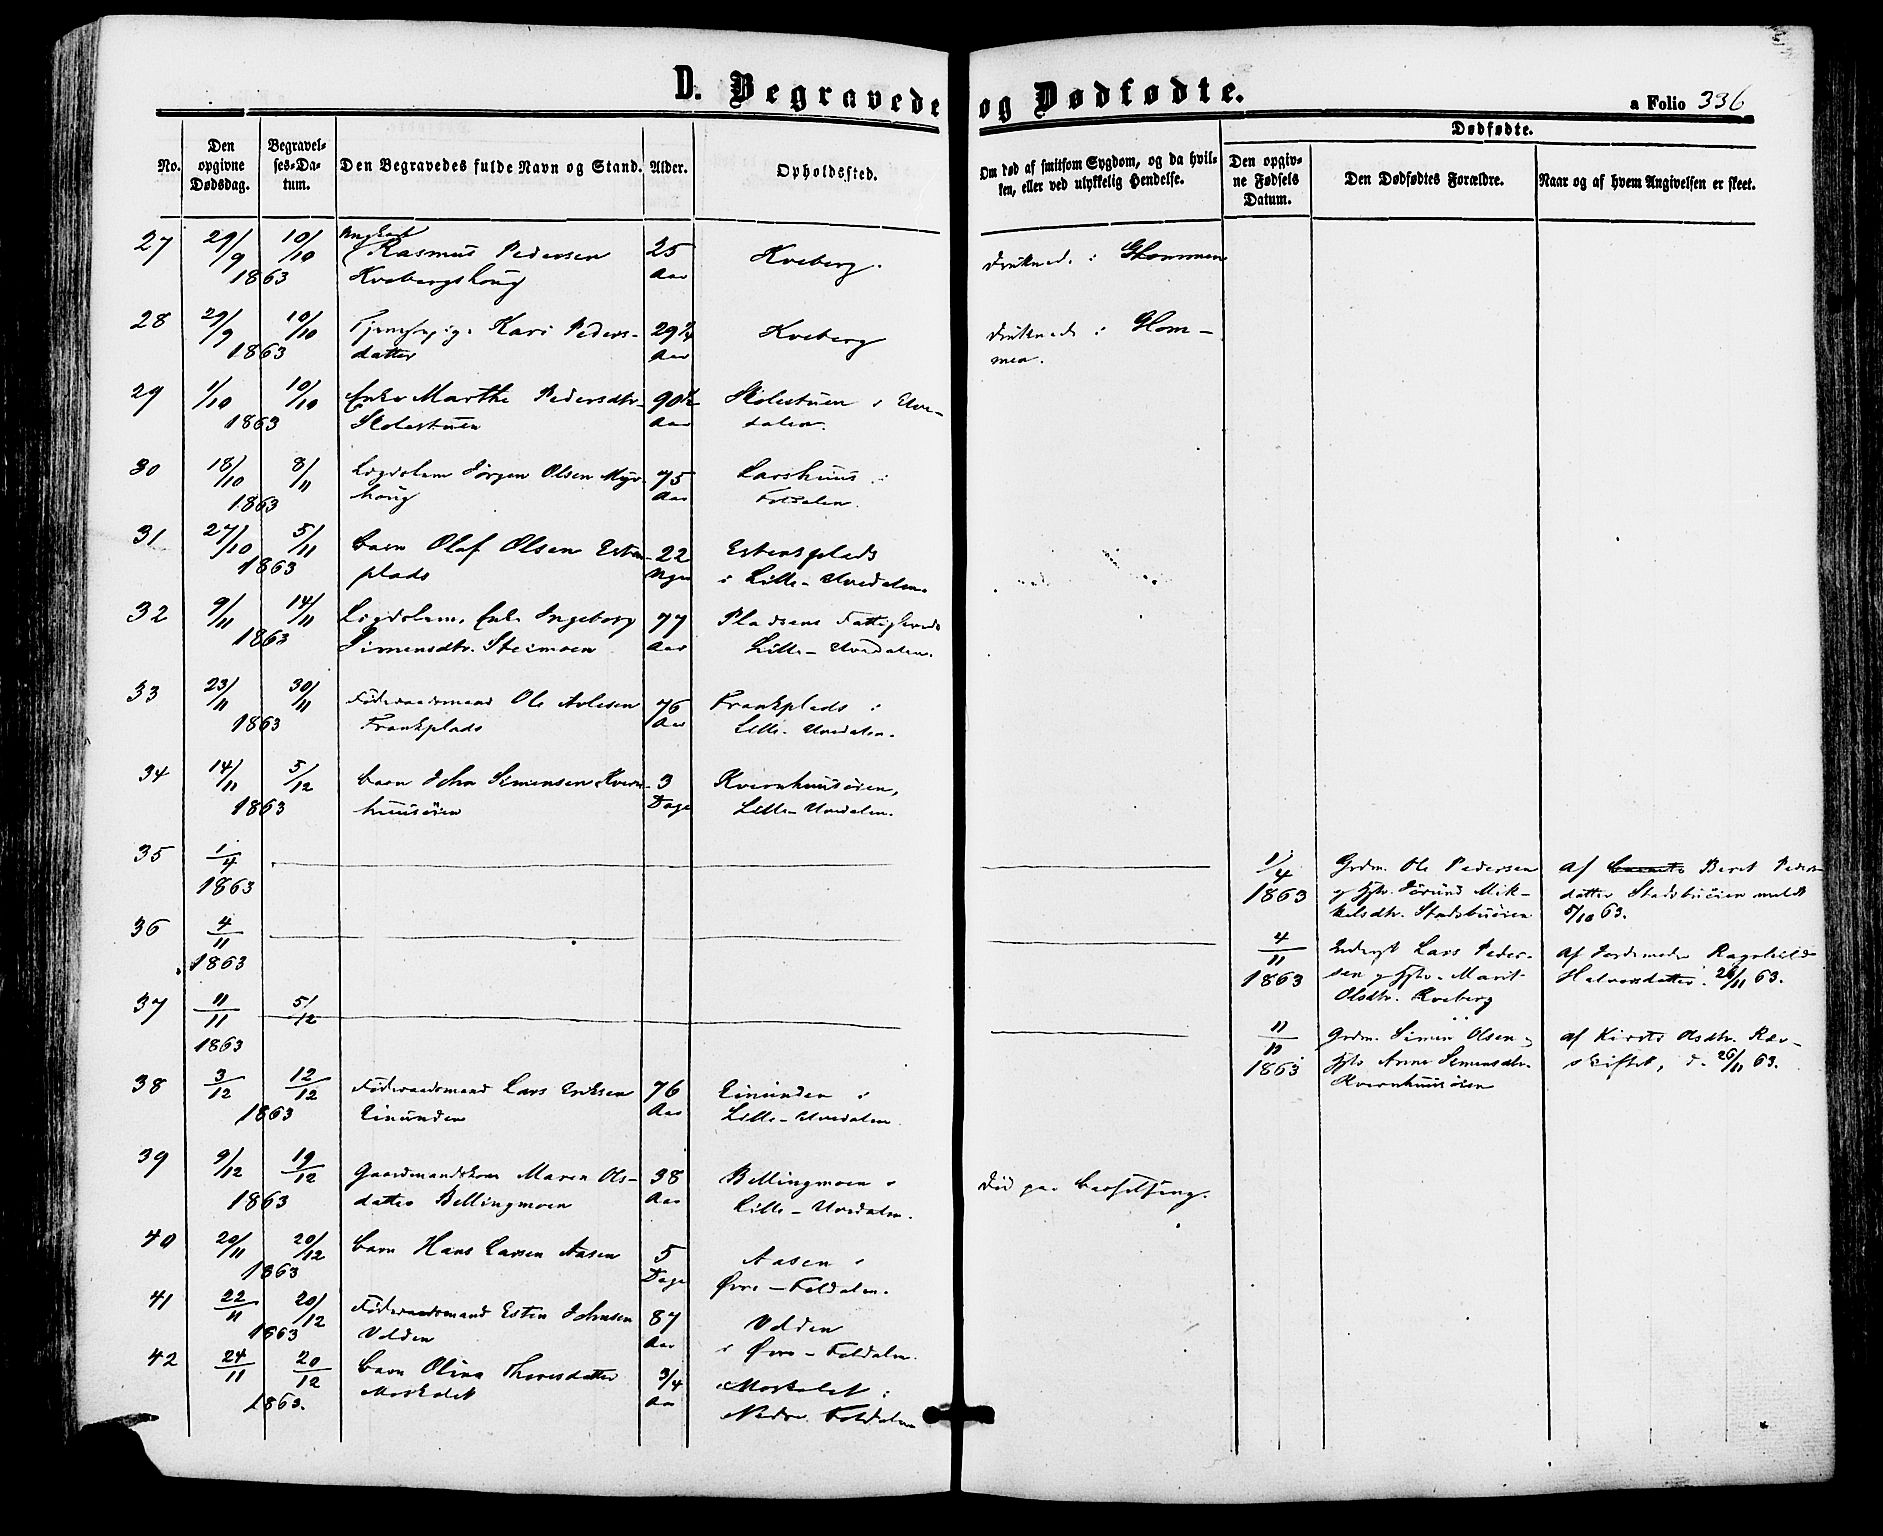 D. Begravede og Dødfødte.
a Folio 336
No.
Den opgivne Dødsdag.
Begravelses-Datum.
Den Begravedes fulde Navn og Stand.
Alder.
Opholdssted.
Om død af smitsom Sygdom, og da hvilken, eller ved ulykkelig Hendelse.
Dødfødte.
Den opgivne Fødsels Datum.
Den Dødfødtes Forældre.
Naar og af hvem Angivelsen er skeet.
27 29/9 10/10 Ungkarl Rasmus Pedersen 25 Kveberg. druknede i Glommen
1863 Kvebergshoug Aar
28 29/9 10/10 Kari Peders- 29 Kveberg druknede i Glom-
1863 datter Aar men.
29 1/10 10/10 Enke Marthe Pedersdtr. 90 Skolestuen i Uve-
1863 Skolestuen Aar dalen.
30 18/10 8/11 Lægdslem Jørgen Olsen Myr- 75 Larshuus i
1863 houg Aar Foldalen.
31 27/10 5/11 barn Olaf Olsen Esten- 22 Estensplads
1863 plads Uger i Lille-Uvedalen.
32 9/11 14/11 Lægdslem, Enke Ingeborg 77 Pladsens
1863 Simensdtr. Steimoen Aar Lille-Uvedalen.
33 23/11 30/11 Føderaadsmand Ole 76 Frankplads i
1863 Frankplads Aar Lille-Uvedalen.
34 14/11 5/12 barn John Simensen Kvern- 3 Kvernhuusøien,
1863 huusøien Dage Lille-Uvedalen.
35 1/4 1/4 Grdm. Ole Pedersen af Beret Peders-
1863 1863 og Hstr. Jørund Mik- datter Stadsbuøien meldt
kelsdtr. Stadsbuøien 5/10 63.
36 4/11 4/11 Inderst Lars Peder- af Jordemoder Ragnhild
1863 1863 sen og Hstr. Marit Halvorsdatter. 26/11 63.
Olsdtr. Kveberg
37 11/11 5/12 11/11 Grdm. Simen Olsen og af Kirsti Olsdtr. Ræv-
1863 1863 Hstr Anne Simensdtr. skiftet, d. 26/11 63.
Kvernhuusøien
38 3/12 12/12 Føderaadsmand Lars Eriksen 76 Einunden i
1863 Einunden Aar Lille-Uvedalen.
39 9/12 19/12 Gaardmandskone Maren Ols- 38 Bellingmoen i død paa Barselseng.
1863 datter Bellingmoen Aar Lille-Uvedalen.
40 20/11 20/12 barn Hans Larsen Aasen 5 Aasen i
1863 Dage Øvre-Foldalen.
41 22/11 20/12 Føderaadsmand Esten Johnsen 87 Volden
1863 Volden Aar i Øvre-Foldalen.
42 24/11 20/12 barn Olina Thoresdatter 3/4 Moskolet i
1863. Moskolet Aar Nedre Foldalen